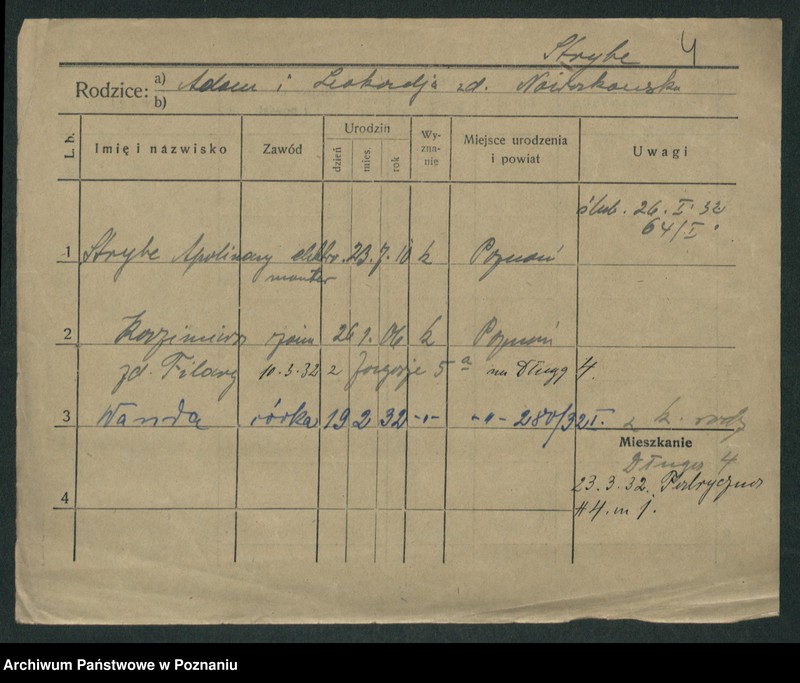 Strybe 4
Rodzice: a) Adam i Leokadja zd.
b)
L. b. Imię i nazwisko Zawód Urodzin dzień mies. rok Wy-zna-nie Miejsce urodzenia i powiat Uwagi
ślub. 26. I. 32
64/I.
1 Strybe Apolinary elektro. 23. 7. 10 k Poznań
monter
2 Kazimiera żona 26 1. 06 k Poznań
zd. Filary 10. 3. 32 z 5 a na Długą 4.
3 Wanda córka 19 2 32 -"- -"- 280/32 I.
Mieszkanie
Długa 4
23. 3. 32. Fabryczna
44. m 1.
4
Archiwum Państwowe w Poznaniu